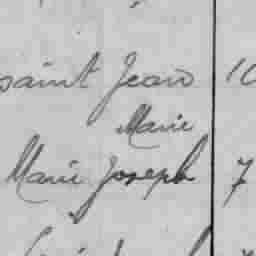 saint Jean 10
Marie
Marie Joseph 7